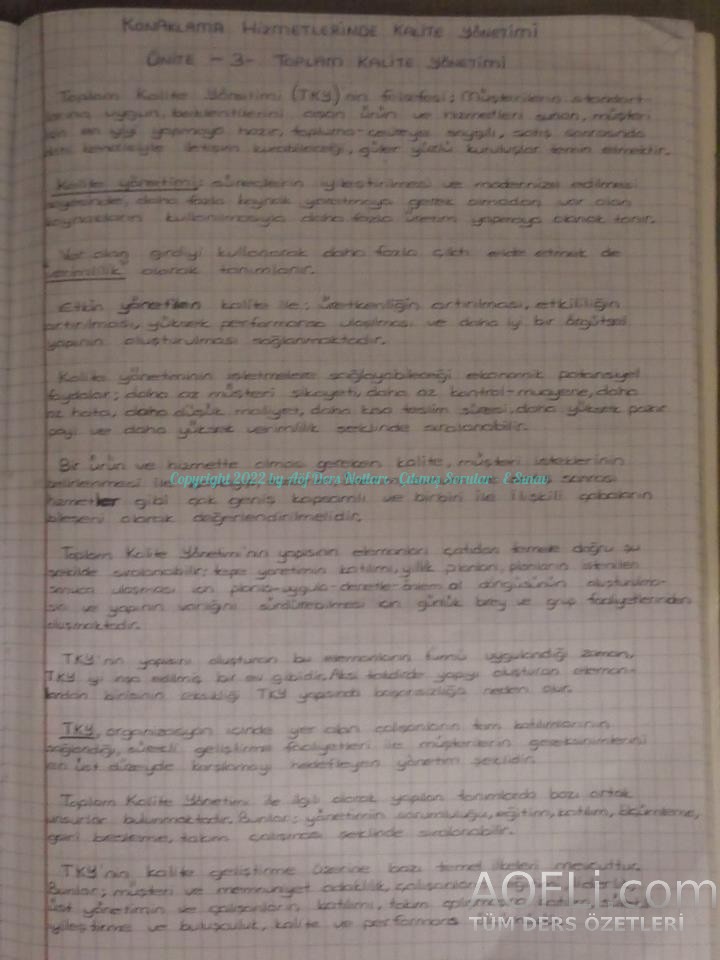 KONAKLAMA HİZMETLERİNDE KALİTE YÖNETİMİ
ÜNİTE - 3 - TOPLAM KALİTE YÖNETİMİ
Toplam Kalite Yönetimi (TKY)'nin felsefesi; Müşterilerin standart-
larına uygun, beklentilerini aşan ürün ve hizmetleri sunan, müşteri
için en iyiyi yapmaya hazır, topluma-çevreye saygılı, satış sonrasında
kendisiyle iletişim kurabileceği, güler yüzlü kuruluşlar temin etmektir.
Kalite yönetimi; süreçlerin iyileştirilmesi ve modernize edilmesi
sayesinde, daha fazla kaynak yaratmaya gerek olmadan var olan
kaynakların kullanılmasıyla daha fazla üretim yapmaya olanak tanır.
Var olan girdiyi kullanarak daha fazla çıktı elde etmek de
"verimlilik" olarak tanımlanır.
Etkin yönetilen kalite ile; üretkenliğin artırılması, etkililiğin
artırılması, yüksek performansa ulaşılması ve daha iyi bir örgütsel
yapının oluşturulması sağlanmaktadır.
Kalite yönetiminin işletmelere sağlayabileceği ekonomik potansiyel
faydalar; daha az müşteri şikayeti, daha az kontrol-muayene, daha
az hata, daha düşük maliyet, daha kısa teslim süresi, daha yüksek pazar
payı ve daha yüksek verimlilik şeklinde sıralanabilir.
Bir ürün ve hizmette olması gereken kalite, müşteri isteklerinin
belirlenmesi ile sonrası
Copyright 2022 by Aöf Ders Notları - Çıkmış Sorular - E Sınav
hizmetler gibi çok geniş kapsamlı ve birbiri ile ilişkili çabaların
bileşeni olarak değerlendirilmelidir.
Toplam Kalite Yönetimi'nin yapısının elemanları çatıdan temele doğru şu
şekilde sıralanabilir; tepe yönetimin katılımı, yıllık planları, planların istenilen
sonuca ulaşması için planla-uygula-denetle-önlem al döngüsünün oluşturulma-
sı ve yapının varlığını sürdürebilmesi için günlük birey ve grup faaliyetlerinden
oluşmaktadır.
TKY'nin yapısını oluşturan bu elemanların tümü uygulandığı zaman,
TKY iyi inşa edilmiş bir ev gibidir. Aksi takdirde yapıyı oluşturan eleman-
lardan birisinin eksikliği TKY yapısında başarısızlığa neden olur.
TKY, organizasyon içinde yer alan çalışanların tam katılımlarının
sağlandığı, sürekli geliştirme faaliyetleri ile müşterilerin gereksinimlerini
en üst düzeyde karşılamayı hedefleyen yönetim şeklidir.
Toplam Kalite Yönetimi ile ilgili olarak yapılan tanımlarda bazı ortak
unsurlar bulunmaktadır. Bunlar; yönetimin sorumluluğu, eğitim, katılım, ölçümleme,
geri besleme, takım çalışması şeklinde sıralanabilir.
TKY'nin kalite geliştirme üzerine bazı temel ilkeleri mevcuttur.
Bunlar; müşteri ve memnuniyet odaklılık, çalışanların
üst yönetimin ve çalışanların katılımı, takım çalışmasına katılım, sürekli
iyileştirme ve buluşçuluk, kalite ve performans
AOFELi.com
TÜM DERS ÖZETLERİ